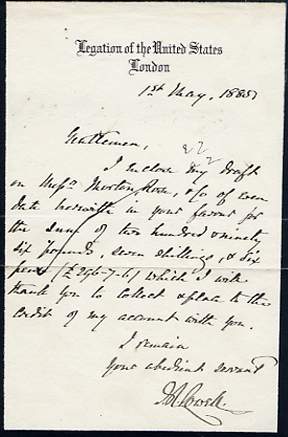 Legation of the United States
London
1st May, 1885
Gentlemen,
I enclose my draft
on Messrs. Morton, Rose, & Co of even
date herewith in your favor for
the sum of two hundred & ninety
six pounds, seven shillings, & six
pence £296-7-6) which I will
thank you to collect & place to the
credit of my account with you.
I remain
your obedient servant
J.R. Lowell.